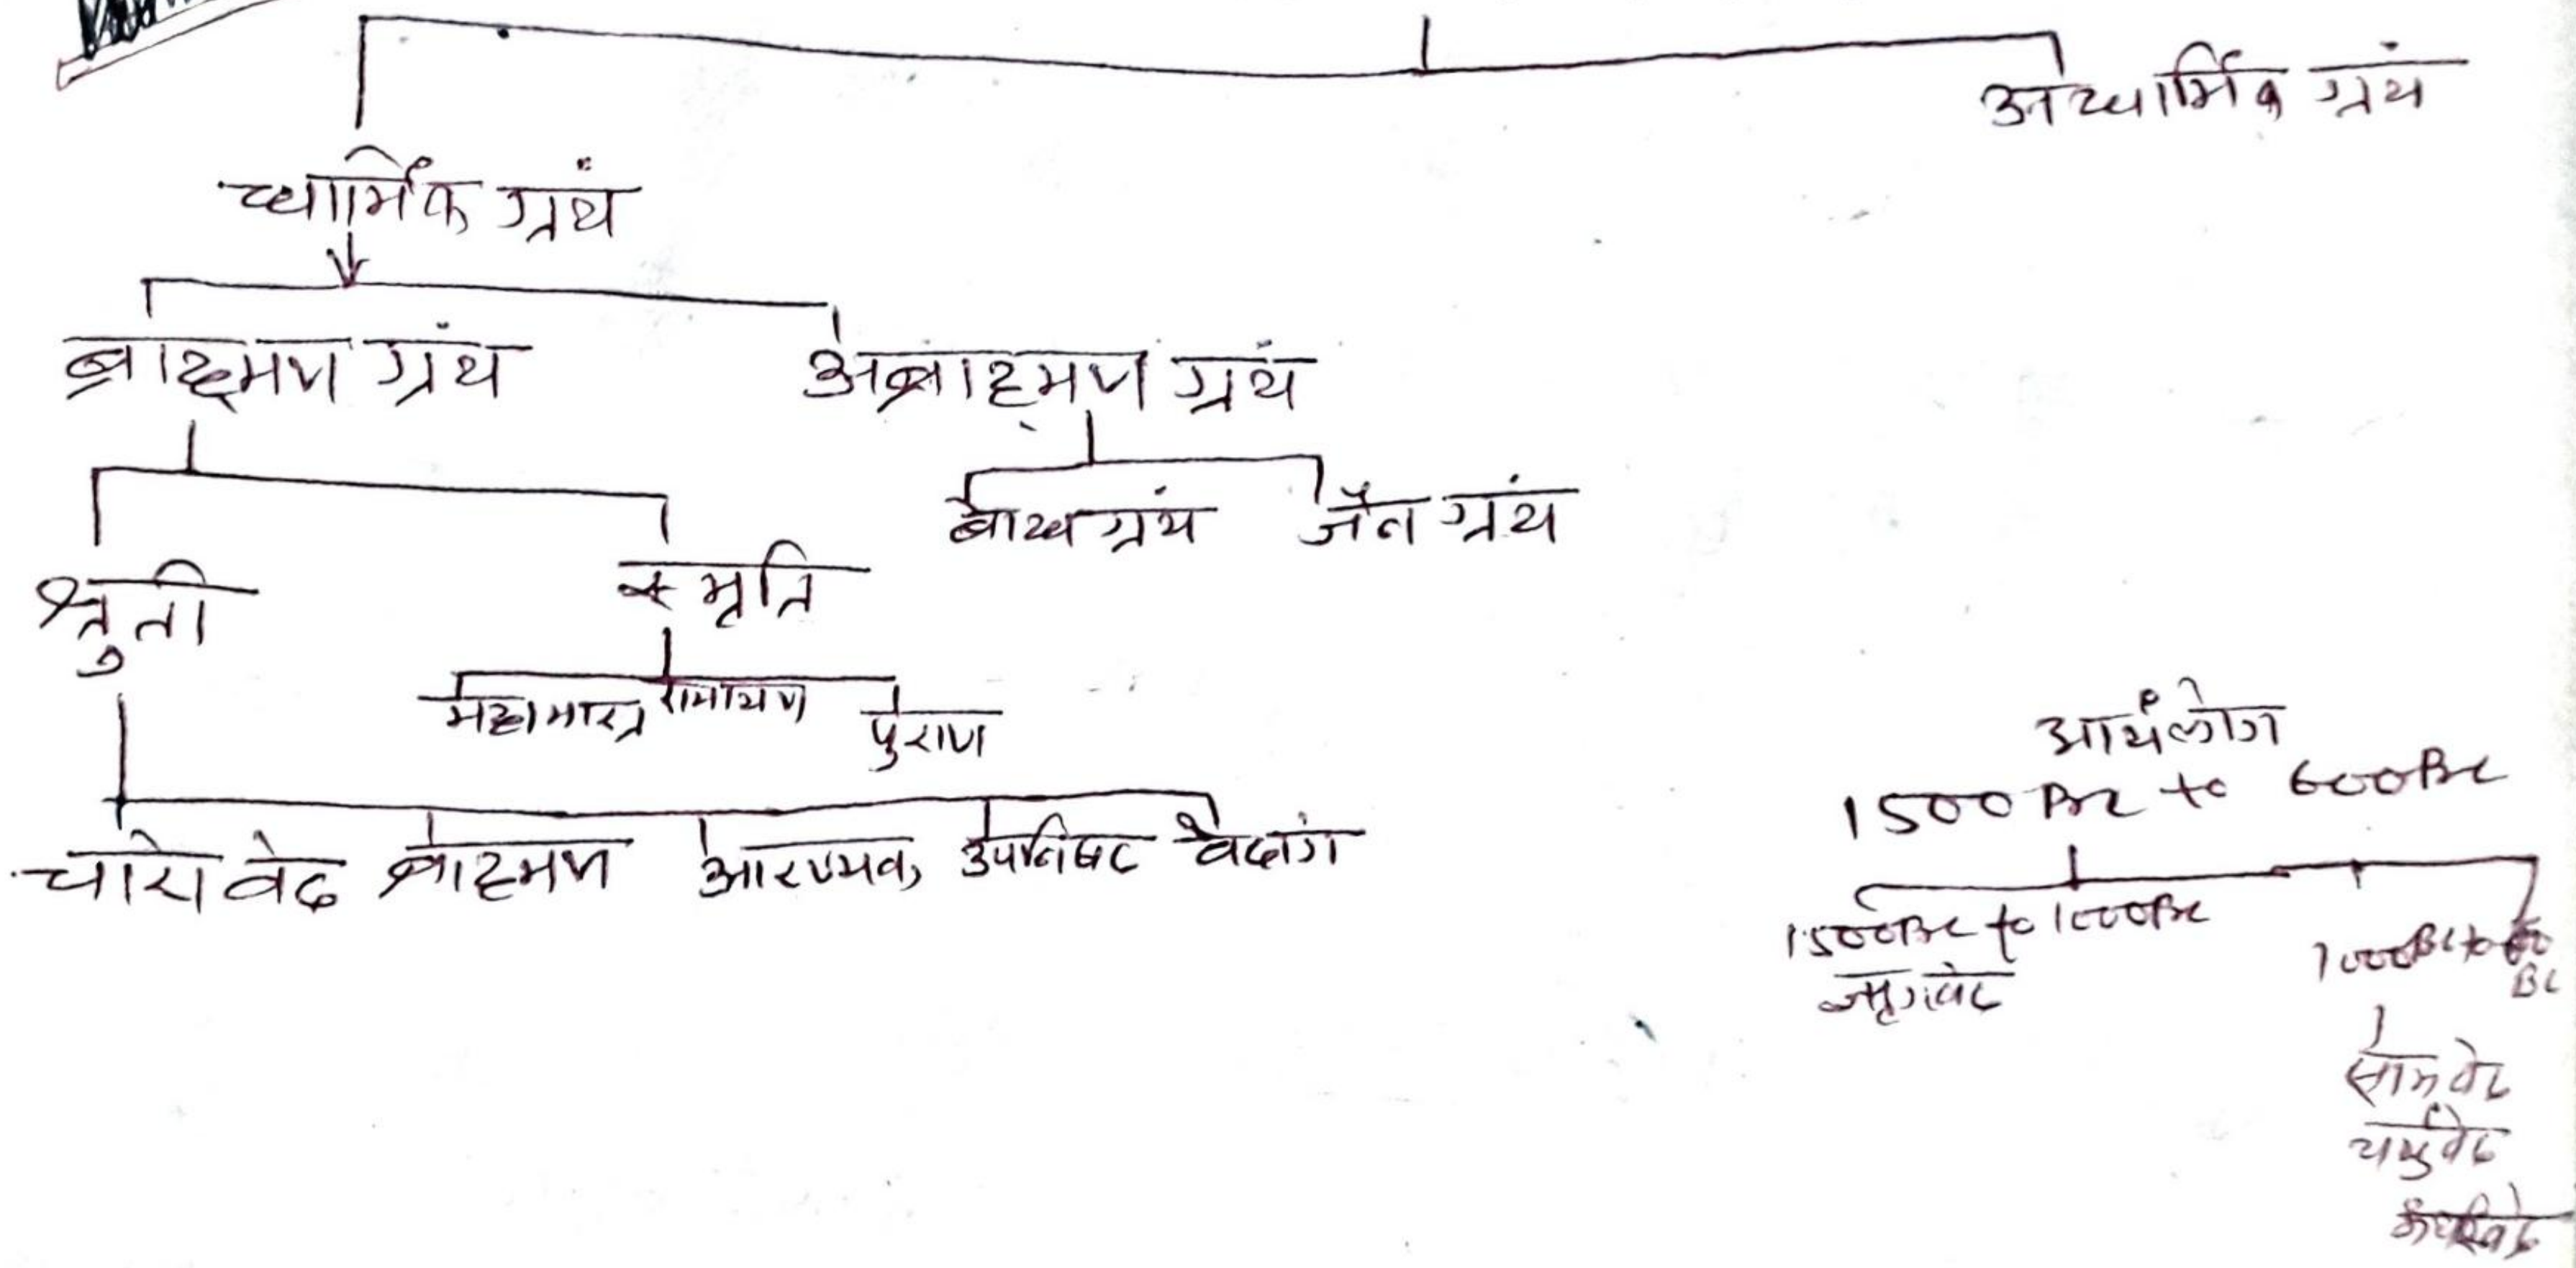 अधार्मिक ग्रंथ
धार्मिक ग्रंथ
ब्राह्मण ग्रंथ अब्राह्मण ग्रंथ
बौध्द ग्रंथ जैन ग्रंथ
श्रुती स्मृति
महाभारत रामायण पुराण
चारो वेद ब्राह्मण आरण्यक उपनिषद वेदांग
आर्यलोग
1500 BC to 600 BC
1500BC to 1000BC
ऋग्वेद
1000BC to 600
BC
सामवेद
यर्जुवेद
अर्थववेद